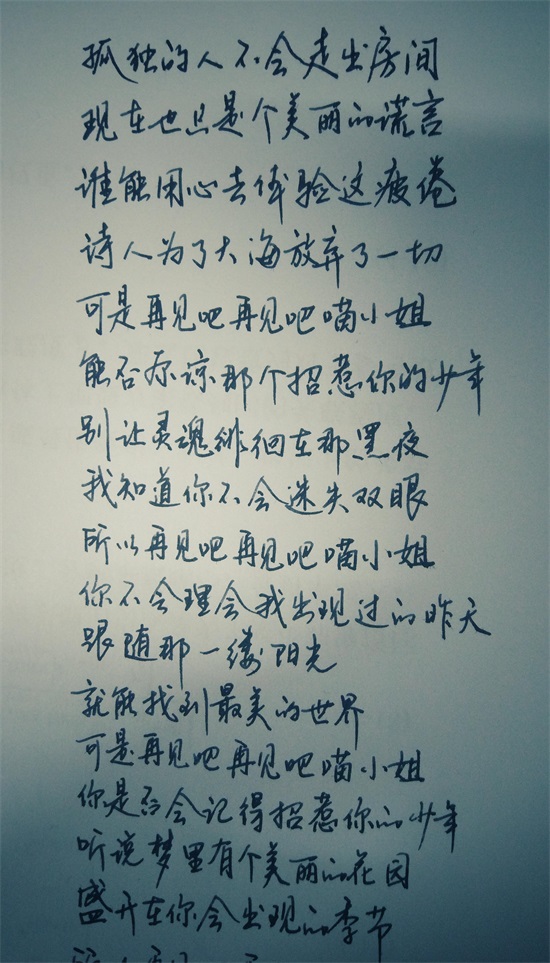 孤独的人不会走出房间
现在也只是个美丽的谎言
谁能用心去体验这疲倦
诗人为了大海放弃了一切
可是再见吧再见吧喵小姐
能否原谅那个招惹你的少年
别让灵魂徘徊在那黑夜
我知道你不会迷失双眼
所以再见吧再见吧喵小姐
你不会理会我出现过的昨天
跟随那一缕阳光
就能找到最美的世界
可是再见吧再见吧喵小姐
你是否会记得招惹你的少年
听说梦里有个美丽的花园
盛开在你会出现的季节